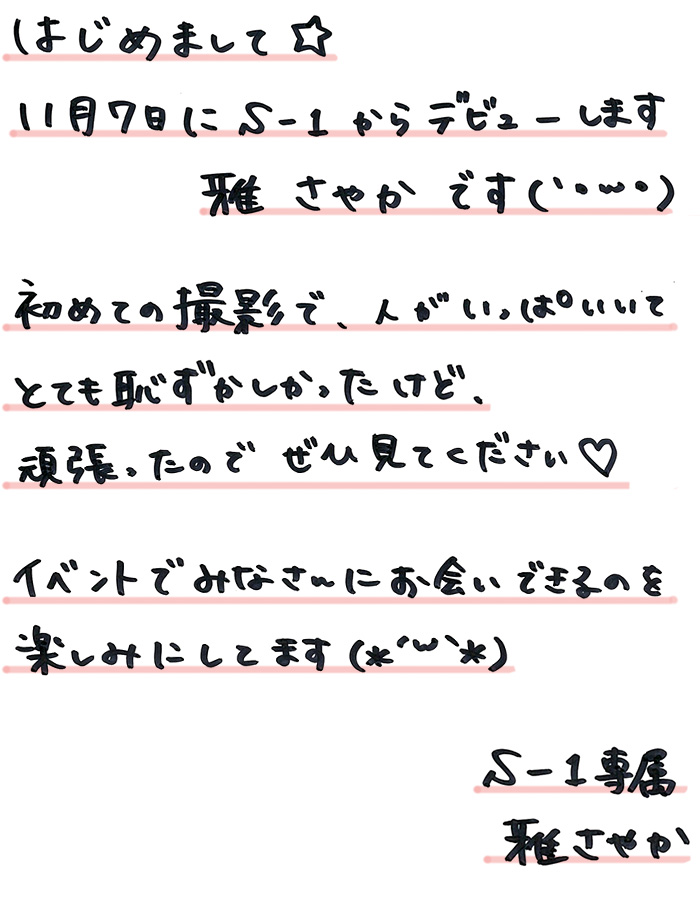 はじめまして☆
11月7日に S-1 からデビューします
雅 さやか です(`・ω・)
初めての撮影で、人がいっぱいいて
とても恥ずかしかったけど、
頑張ったので ぜひ見てください♡
イベントでみなさんにお会いできるのを
楽しみにしてます(*´ω`*)
S-1専属
雅さやか